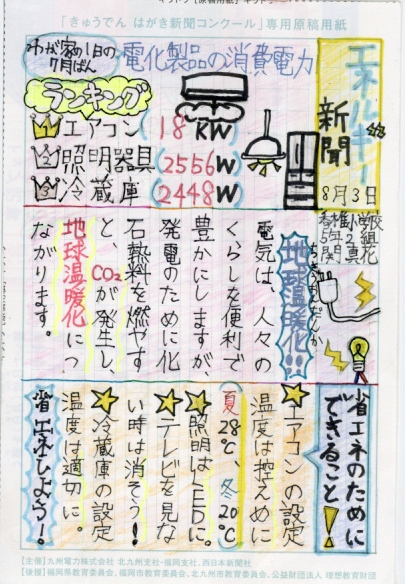 「きゅうでん はがき新聞コンクール」専用原稿用紙
エネルギー
新聞
8月3日
わが家の1日の
7月ばん
電化製品の消費電力
ランキング
1エアコン(18KW)
2照明器具(2556W)
3冷蔵庫(2448W)
地球温暖化!!
電気は、人々の
くらしを便利で
豊かにしますが、
発電のために化
石熱料を燃やす
と、CO₂が発生し、
地球温暖化につ
ながります。
省エネのために
できること!
★エアコンの設定
温度は控えめに
夏28℃、冬20℃
★照明はLEDに。
★テレビを見な
い時は消そう!
★冷蔵庫の設定
温度は適切に。
省エネしよう!
【主催】九州電力株式会社 北九州支社・福岡支社、西日本新聞社
【後援】福岡県教育委員会、福岡市教育委員会、北九州市教育委員会、公益財団法人 理想教育財団